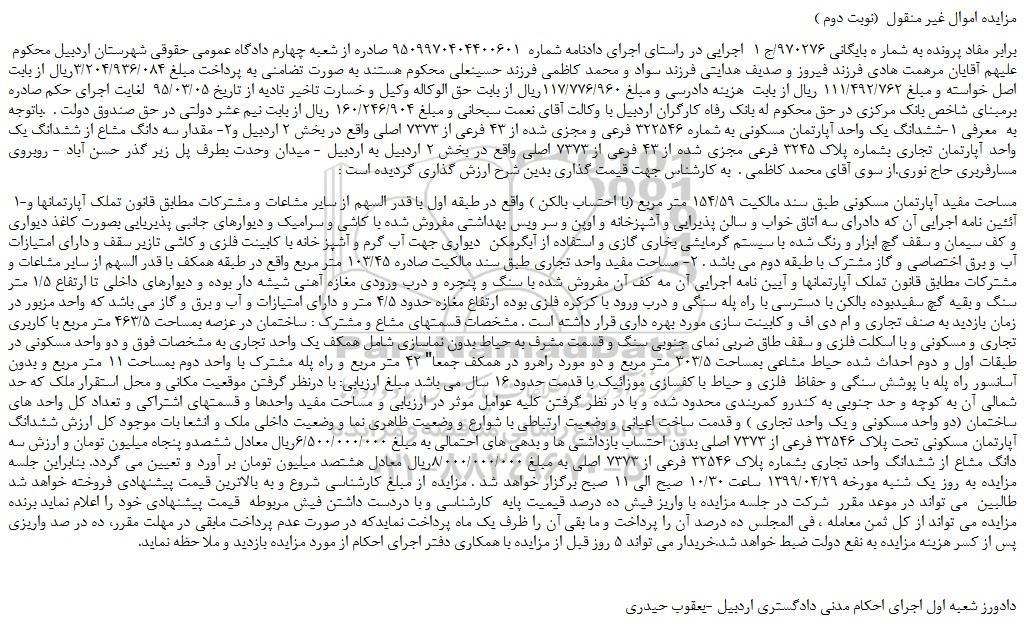 مزایده اموال غیر منقول (نوبت دوم )
برابر مفاد پرونده به شمار ه بایگانی ۹۷۰۲۷۶/ج ۱ اجرایی در راستای اجرای دادنامه شماره ۹۵۰۹۹۷۰۴۰۴۴۰۰۶۰۱ صادره از شعبه چهارم دادگاه عمومی حقوقی شهرستان اردبیل محکوم
علیهم آقایان مرهمت هادی فرزند فیروز و صدیف هدایتی فرزند سواد و محمد کاظمی فرزند حسینعلی محکوم هستند به صورت تضامنی به پرداخت مبلغ ۳/۲۰۴/۹۳۶/۰۸۴ریال از بابت
اصل خواسته و مبلغ ۱۱۱/۴۹۲/۷۶۲ ریال از بابت هزینه دادرسی و مبلغ ۱۱۷/۷۷۶/۹۶۰ریال از بابت حق الوکاله وکیل و خسارت تاخیر تادیه از تاریخ ۹۵/۰۳/۰۵ لغایت اجرای حکم صادره
برمبنای شاخص بانک مرکزی در حق محکوم له بانک رفاه کارگران اردبیل با وکالت آقای نعمت سبحانی و مبلغ ۱۶۰/۲۴۶/۹۰۴ ریال از بابت نیم عشر دولتی در حق صندوق دولت . باتوجه
به معرفی ۱-ششدانگ یک واحد آپارتمان مسکونی به شماره ۳۲۲۵۴۶ فرعی و مجزی شده از ۴۳ فرعی از ۷۳۷۳ اصلی واقع در بخش ۲ اردبیل و۲- مقدار سه دانگ مشاع از ششدانگ یک
واحد آپارتمان تجاری بشماره پلاک ۳۲۴۵ فرعی مجزی شده از ۴۳ فرعی از ۷۳۷۳ اصلی واقع در بخش ۲ اردبیل به اردبیل - میدان وحدت بطرف پل زیر گذر حسن آباد - روبروی
مسارفربری حاج نوری.از سوی آقای محمد کاظمی . به کارشناس جهت قیمت گذاری بدین شرح ارزش گذاری گردیده است :
۱-مساحت مفید آپارتمان مسکونی طبق سند مالکیت ۱۵۴/۵۹ متر مربع (با احتساب بالکن ) واقع در طبقه اول با قدر السهم از سایر مشاعات و مشترکات مطابق قانون تملک آپارتمانها و
آئین نامه اجرایی آن که دادرای سه اتاق خواب و سالن پذیرایی و آشپزخانه و اوپن و سر ویس بهداشتی مفروش شده با کاشی و سرامیک و دیوارهای جانبی پذیربایی بصورت کاغذ دیواری
و کف سیمان و سقف گچ ابزار و رنگ شده با سیستم گرمایشی بخاری گازی و استفاده از آبگرمکن دیواری جهت آب گرم و آشپز خانه با کابینت فلزی و کاشی تازیر سقف و دارای امتیازات
آب و برق اختصاصی و گاز مشترک با طبقه دوم می باشد . ۲- مساحت مفید واحد تجاری طبق سند مالکیت صادره ۱۰۳/۴۵ متر مربع واقع در طبقه همکف با قدر السهم از سایر مشاعات و
مشترکات مطابق قانون تملک آپارتمانها و آیین نامه اجرایی آن مه کف آن مفروش شده با سنگ و پنجره و درب ورودی مغازه آهنی شیشه دار بوده و دیوارهای داخلی تا ارتفاع ۱/۵ متر
سنگ و بقیه گچ سفیدبوده بالکن با دسترسی با راه پله سنگی و درب ورود با کرکره فلزی بوده ارتفاع مغازه حدود ۴/۵ متر و دارای امتیازات و آب و برق و گاز می باشد که واحد مزبور در
زمان بازدید به صنف تجاری و ام دی اف و کابینت سازی مورد بهره داری قرار داشته است . مشخصات قسمتهای مشاع و مشترک : ساختمان در عرصه بمساحت ۴۶۳/۵ متر مربع با کاربری
تجاری و مسکونی و با اسکلت فلزی و سقف طاق ضربی نمای جنوبی سنگ و قسمت مشرف به حیاط بدون نماسازی شامل همکف یک واحد تجاری به مشخصات فوق و دو واحد مسکونی در
طبقات اول و دوم احداث شده حیاط مشاعی بمساحت ۳۰۳/۵ متر مربع و دو مورد راهرو در همکف جمعا" ۴۲ متر مربع و راه پله مشترک با واحد دوم بمساحت ۱۱ متر مربع و بدون
آسانسور راه پله با پوشش سنگی و حفاظ فلزی و حیاط با کفسازی موزائیک با قدمت حدود ۱۶ سال می باشد مبلغ ارزیابی: با درنظر گرفتن موقعیت مکانی و محل استقرار ملک که حد
شمالی آن به کوچه و حد جنوبی به کندرو کمربندی محدود شده و با در نظر گرفتن کلیه عوامل موثر در ارزیابی و مساحت مفید واحدها و قسمتهای اشتراکی و تعداد کل واحد های
ساختمان (دو واحد مسکونی و یک واحد تجاری ) و قدمت ساخت اعیانی و وضعیت ارتباطی با شوارع و وضعیت ظاهری نما و وضعیت داخلی ملک و انشعا بات موجود کل ارزش ششدانگ
آپارتمان مسکونی تحت پلاک ۳۲۵۴۶ فرعی از ۷۳۷۳ اصلی بدون احتساب بازداشتی ها و بدهی های احتمالی به مبلغ ۶/۵۰۰/۰۰۰/۰۰۰ریال معادل ششصدو پنجاه میلیون تومان و ارزش سه
دانگ مشاع از ششدانگ واحد تجاری بشماره پلاک ۳۲۵۴۶ فرعی از ۷۳۷۳ اصلی به مبلغ ۸۰۰۰/۰۰۰/۰۰۰ریال معادل هشتصد میلیون تومان بر آورد و تعیین می گردد. بنابراین جلسه
مزایده به روز یک شنبه مورخه ۱۳۹۹/۰۴/۲۹ ساعت ۱۰/۳۰ صبح الی ۱۱ صبح برگزار خواهد شد . مزایده از مبلغ کارشناسی شروع و به بالاترین قیمت پیشنهادی فروخته خواهد شد
طالبین می تواند در موعد مقرر شرکت در جلسه مزایده با واریز فیش ده درصد قیمیت پایه کارشناسی و با دردست داشتن فیش مربوطه قیمت پیشنهادی خود را اعلام نماید برنده
مزایده می تواند از کل ثمن معامله ، فی المجلس ده درصد آن را پرداخت و ما بقی آن را ظرف یک ماه پرداخت نمایدکه در صورت عدم پرداخت مابقی در مهلت مقرر، ده در صد واریزی
پس از کسر هزینه مزایده به نفع دولت ضبط خواهد شد.خریدار می تواند ۵ روز قبل از مزایده با همکاری دفتر اجرای احکام از مورد مزایده بازدید و ملا حظه نماید.
دادورز شعبه اول اجرای احکام مدنی دادگستری اردبیل -یعقوب حیدری
ParsNamadData